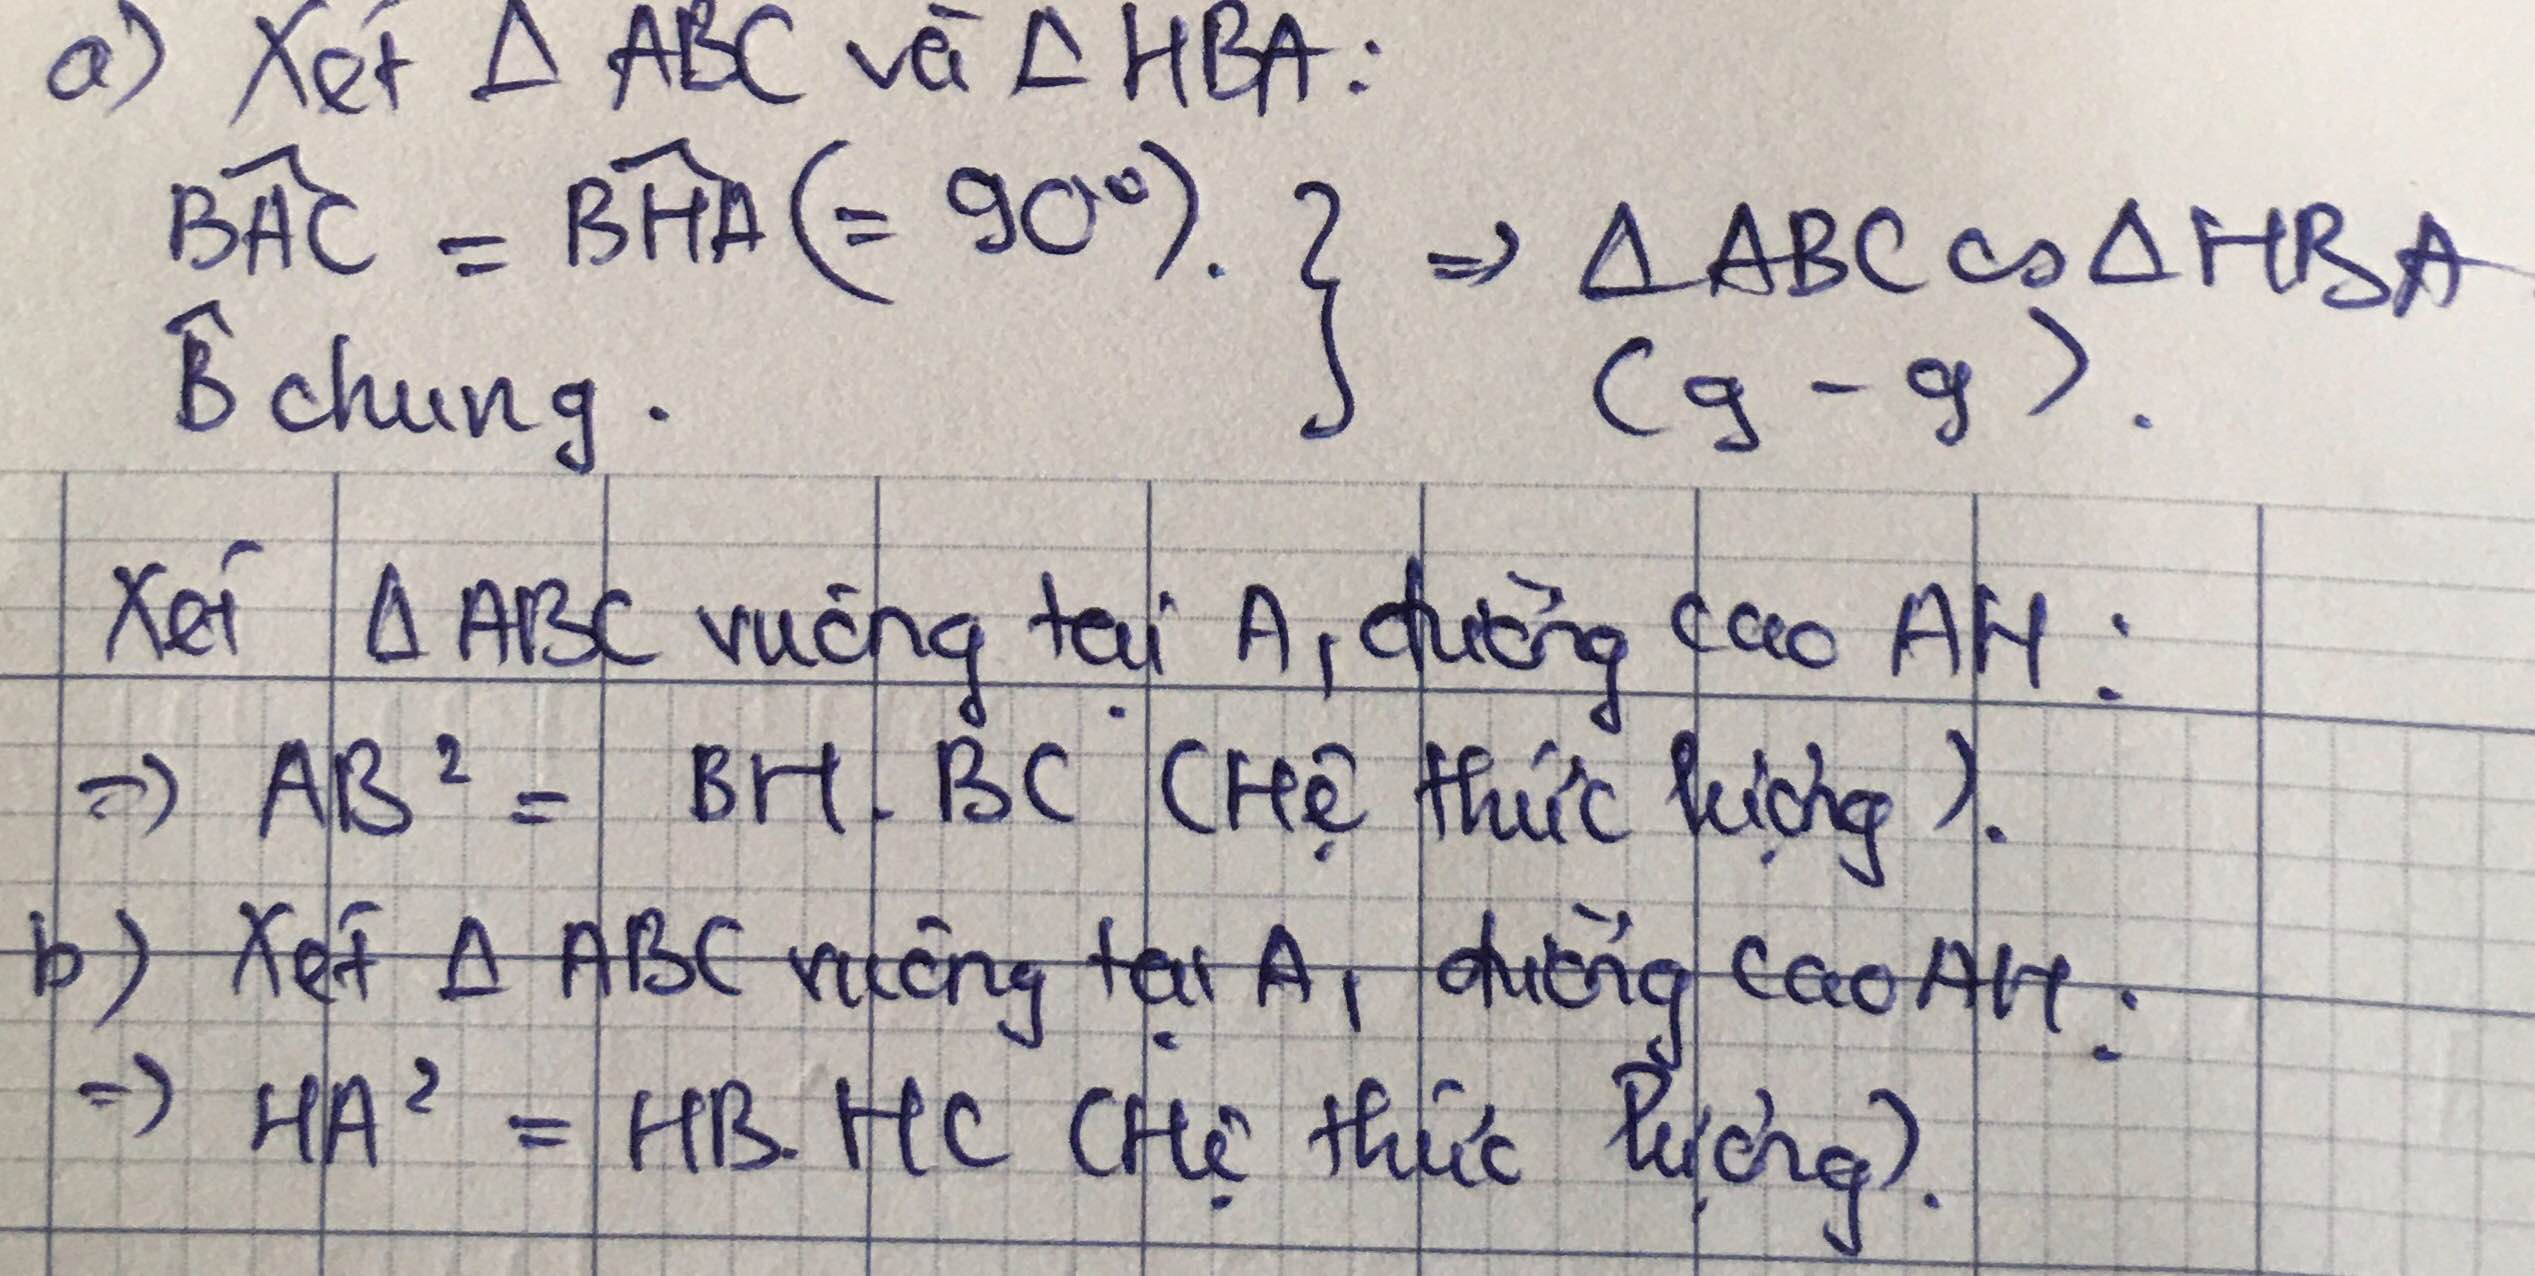 a) Xét Δ ABC và Δ HBA:
BAĈ = BĤA (= 90°). } => Δ ABC ∽ Δ HBA
B̂ chung. (g - g).
Xét Δ ABC vuông tại A, đường cao AH:
=> AB² = BH . BC (Hệ thức lượng).
b) Xét Δ ABC vuông tại A, đường cao AH:
=> HA² = HB. HC (Hệ thức lượng).